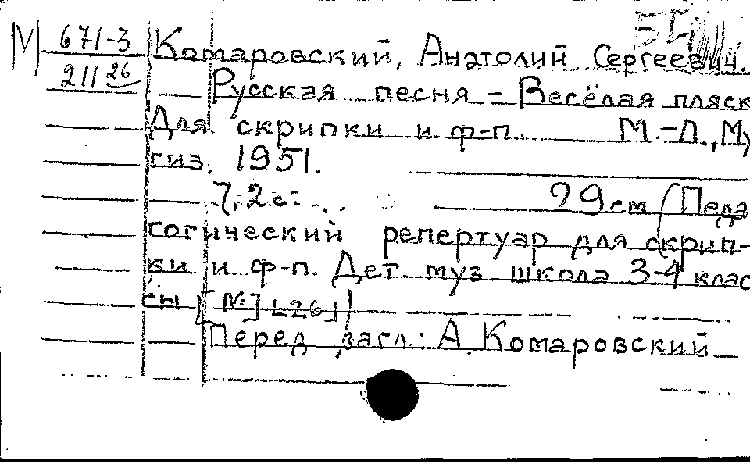 М 671-3 Комаровский, Анатолий Сергеевич.
211 26 Русская песня - Весёлая пляск
Для скрипки и ф-п. М.-Л., Му
гиз, 1951.
7, 2 с. 29 см (Педа
гогический репертуар для скрип-
ки и ф-п. Дет. муз. школа 3-4 клас
сы [№] [26])
Перед загл.: А. Комаровский